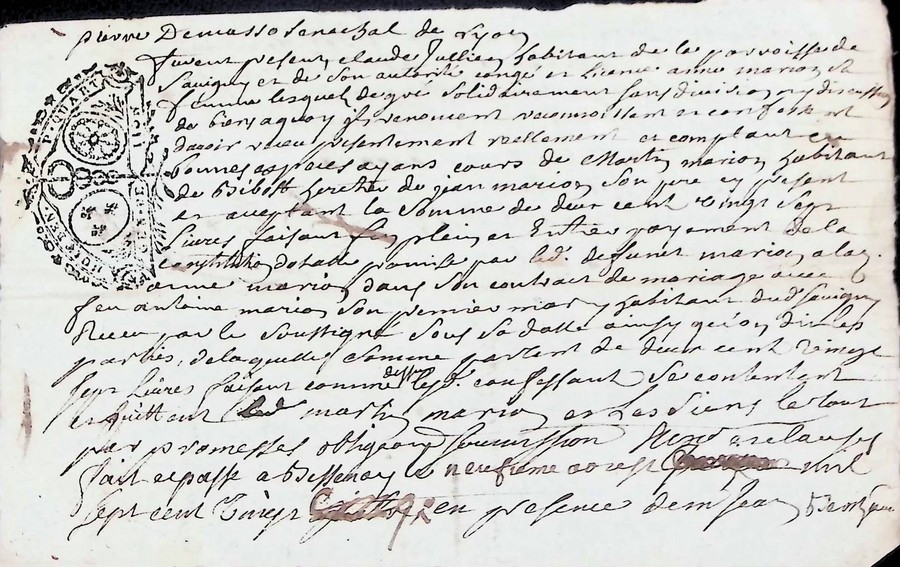 pierre Demasso Senechal de Lyon
furent present claude Jullien habitant de la parroisse de
Savigny et de son autorité congé et licence anne marion sa
femme lesquel de gré solidairement sans division ny discution
de biens a quoy ils renoncent reconnoissent et confessent
davoir receu presentement reellement et comptant en
bonnes especes ayans cours de Martin marion habitant
de Bibost heretier de jean marion son pere cy present
et aceptant la somme de deux cent vingt sept
livres faisant le plein et Entier payement de la
constitution dotalle promise par led. defunt marion a lad.
anne marion dans son contrat de mariage avec
feu antoine marion son premier mary habitant dud. Savigny
Receu par le soussigné sous sa datte ainsy qu'on dit les
parties, de laquelle somme de deux cent vingt
sept livres faisant comme dessus les confessant se contentent
et quittent led. martin marion et les siens le tout
par promesses obligeons soumission Renon et clauses
fait et passé a Bessenay le neufieme mil
sept cent vingt en presence de